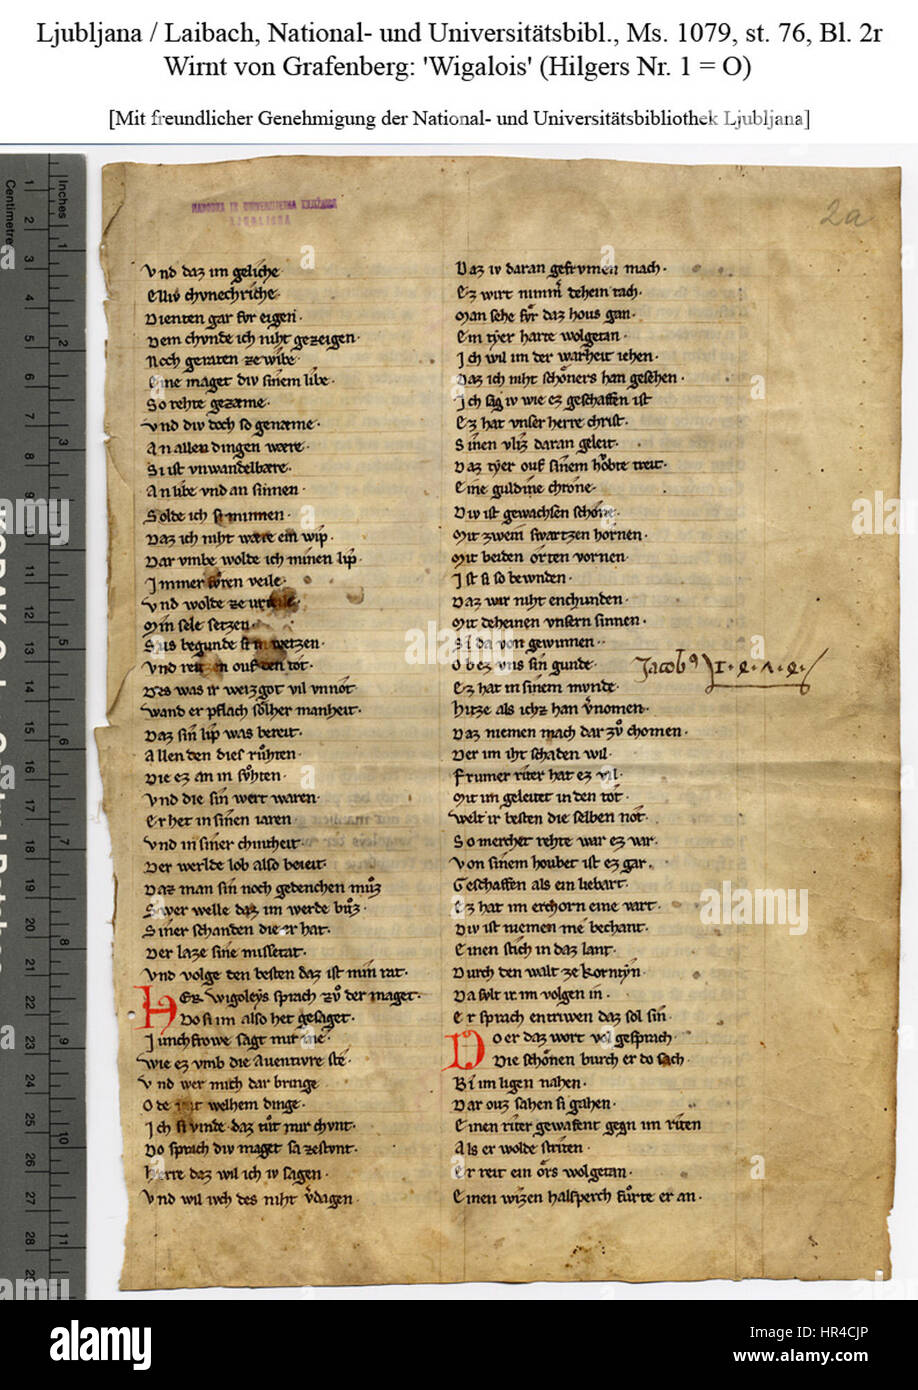 Ljubljana / Laibach, National- und Universitätsbibl., Ms. 1079, st. 76, Bl. 2r
Wirnt von Grafenberg: 'Wigalois' (Hilgers Nr. 1 = O)
[Mit freundlicher Genehmigung der National- und Universitätsbibliothek Ljubljana]
NARODNA IN UNIVERZITETNA KNJIŽNICA
LJUBLJANA
2a
Vnd daz im geliche
Elliv chvnechriche·
Dienten gar fvr eigen·
Dem chvnde ich niht gezeigen·
Noch geraten ze wibe·
Eine maget div sinem libe·
So rehte gezæme·
Vnd div doch so genæme·
An allen dingen wære·
Si ist vnwandelbære·
An libe vnd an sinnen·
Solde ich si minnen·
Daz ich niht wære ein wip·
Dar vmbe wolde ich minen lip·
Immer fvͦren veile·
Vnd wolde ze vrteile·
Min sele setzen·
Svs begunde si in wetzen·
Vnd reitzen ouf den tot·
Des was ir weizgot vil vnnot
Wand er pflach sölher manheit·
Daz sin lip was bereit·
Allen den dies rvͦhten·
Die ez an in svͦhten·
Vnd die sin wert waren·
Er het in sinen iaren·
Vnd in siner chintheit·
Der werlde lob also bereit·
Daz man sin noch gedenchen mvͦz
Swer welle daz im werde bvͦz·
Siner schanden die er hat·
Der laze sine missetat·
Vnd volge den besten daz ist min rat·
HEr Wigoleys sprach zvͦ der maget·
Do si im also het gesaget·
Iunchfrowe sagt mir me·
Wie ez vmb die Auentivre ste·
Vnd wer mich dar bringe
Ode mit welhem dinge·
Ich si vinde· daz tvͦt mir chvnt·
Do sprach div maget sa zestvnt·
Herre daz wil ich iv sagen·
Vnd wil ivch des niht v̓dagen·
Daz iv daran gefrvmen mach·
Ez wirt nimm̓ dehein tach·
Man sehe fvͦr daz hous gan·
Ein tyer harte wolgetan·
Ich wil im der warheit iehen·
Daz ich niht schöners han gesehen·
Ich sag iv wie ez geschaffen ist
Ez hat vnser herre christ·
Sinen vliz daran geleit·
Daz tyer ouf sinem höbte treit·
Eine guldine chrone·
Div ist gewachsen schöne·
Mit zwein swartzen hornen·
Mit beiden orten vornen·
Ist si so bewnden·
Daz wir niht enchunden·
Mit deheinen vnsern sinnen·
Si da von gewinnen·
Ob ez vns sin gunde·
Jacobꝰ
Ez hat in sinem mvnde·
Hitze als ichz han v̓nomen·
Daz niemen mach dar zvͦ chomen·
Der im iht schaden wil·
Frumer riter hat ez vil·
Mit im geleitet in den tot·
Welt ir besten die selben not·
So merchet rehte war ez var·
Von sinem houbet ist ez gar·
Geschaffen als ein liebart·
Ez hat im erchorn eine vart·
Div ist niemen me bechant·
Einen stich in daz lant·
Durch den walt ze Korntyn·
Da svlt ir im volgen in·
Er sprach entriwen daz sol sin·
Do er daz wort vol gesprach·
Die schönen burch er do sach·
Bi im ligen nahen·
Dar ouz sahen si gahen·
Einen riter gewafent gegn im riten
Als er wolde striten·
Er reit ein örs wolgetan·
Einen wizen halsperch fvͦrte er an·